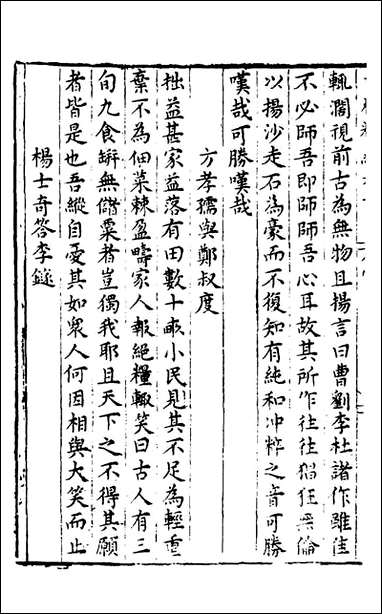 輒濶視前古為無物且揚言曰曹劉李杜諸作雖佳
不必師吾即師師吾心耳故其所作往往猖狂無倫
以揚沙走石為豪而不復知有純和冲粹之音可勝
嘆哉可勝嘆哉
方孝孺與鄭叔度
拙益甚家益落有田數十畝小民見其不足為輕重
棄不為佃菜棘盈疇家人報絕糧輒笑曰古人有三
旬九食缾無儲粟者豈獨我耶且天下之不得其願
者皆是也吾縱自憂其如衆人何因相與大笑而止
楊士奇答李鐩